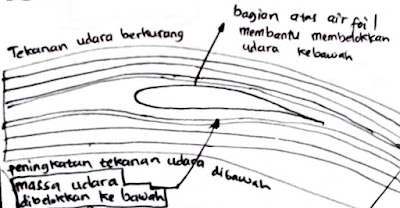 Tekanan udara berkurang
bagian atas airfoil
membantu membelokkan
udara kebawah
peningkatan tekanan udara dibawah
massa udara
dibelokkan ke bawah